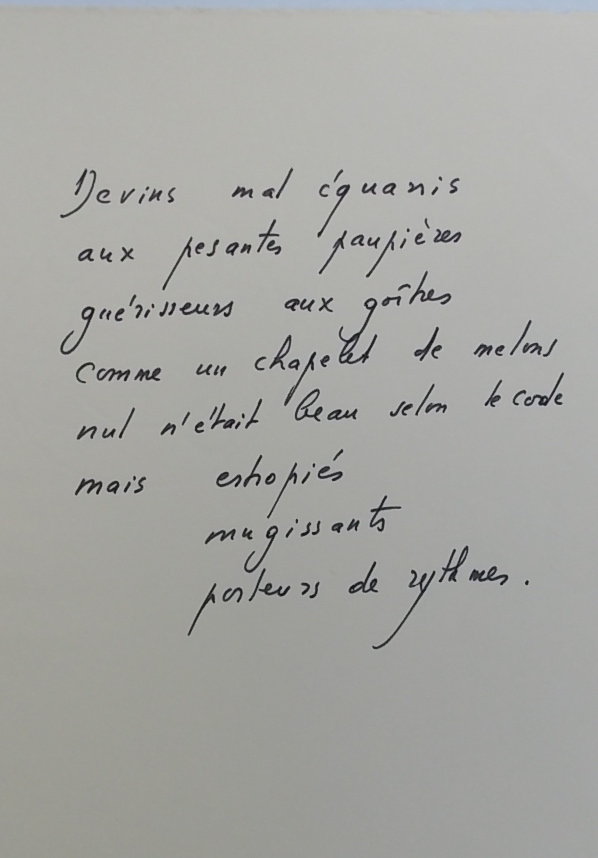 Devins mal équarris
aux pesantes paupières
guérisseurs aux goîtres
comme un chapelet de melons
nul n'était beau selon le code
mais estropiés
mugissants
porteurs de rythmes.